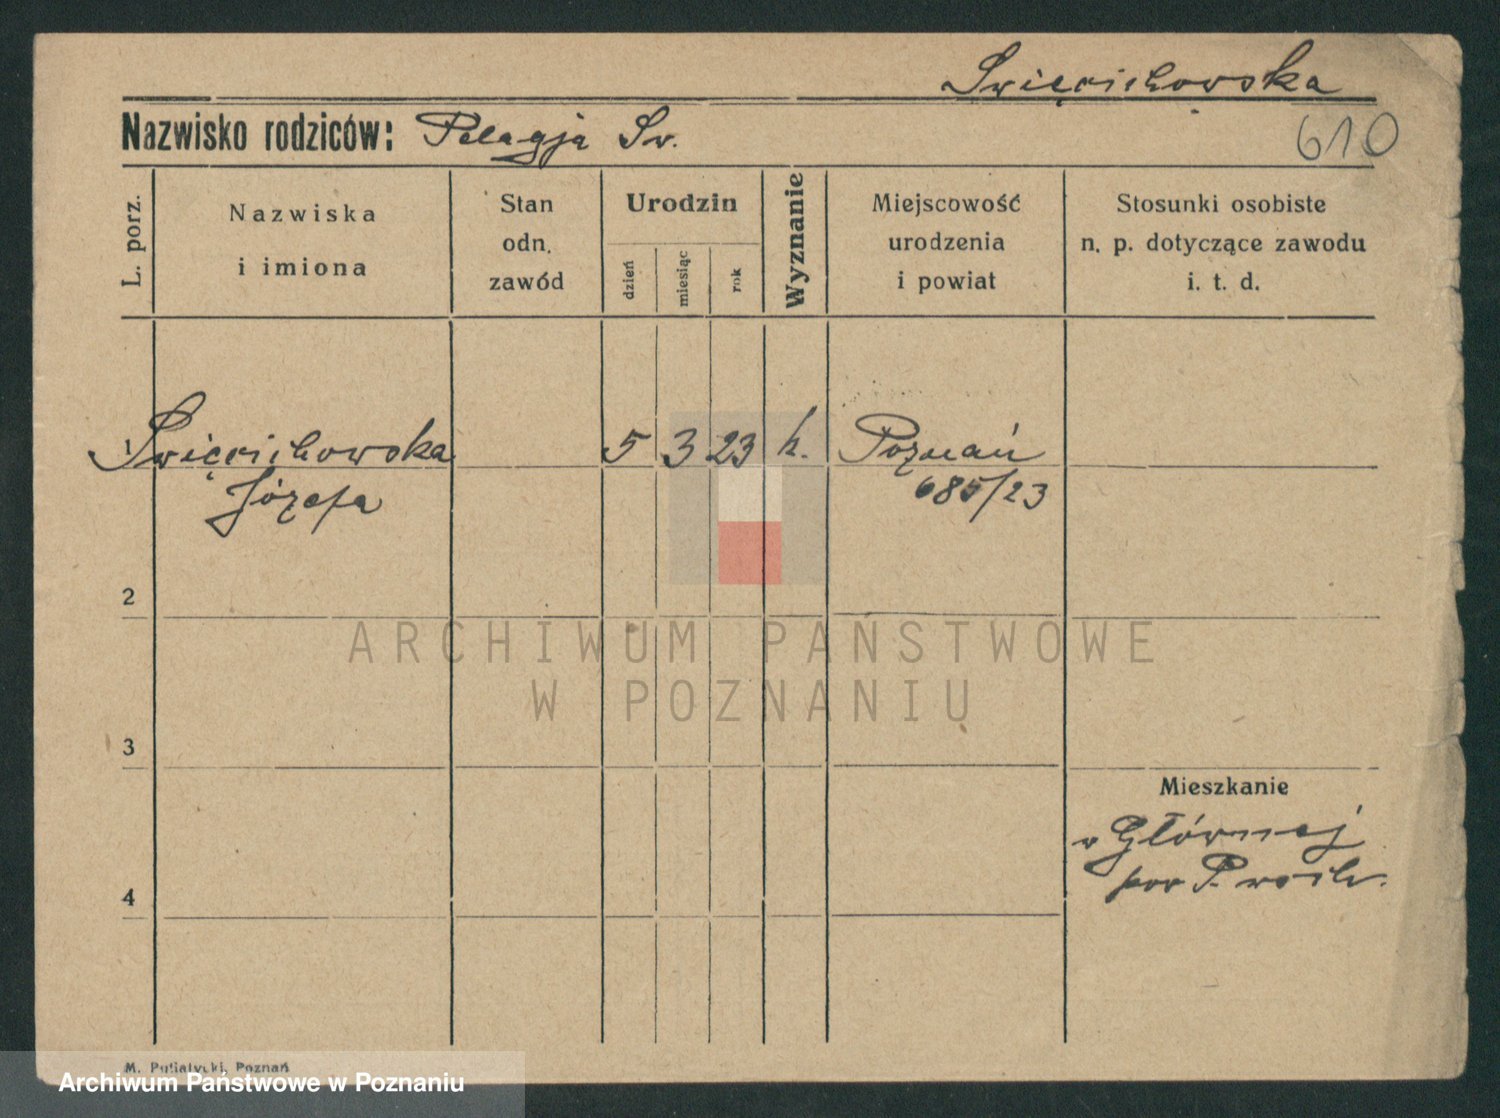 Święcichowska
Nazwisko rodziców: Pelagja Św.
610
L. porz.
Nazwiska
i imiona
Stan
odn.
zawód
Urodzin
dzień
miesiąc
rok
Wyznanie
Miejscowość
urodzenia
i powiat
Stosunki osobiste
n. p. dotyczące zawodu
i. t. d.
1 Święcichowska 5 3 23 k. Poznań
Józefa 685/23
2
ARCHIWUM PAŃSTWOWE
W POZNANIU
3
Mieszkanie
w Głównej
4
M. Putiatycki, Poznań
Archiwum Państwowe w Poznaniu